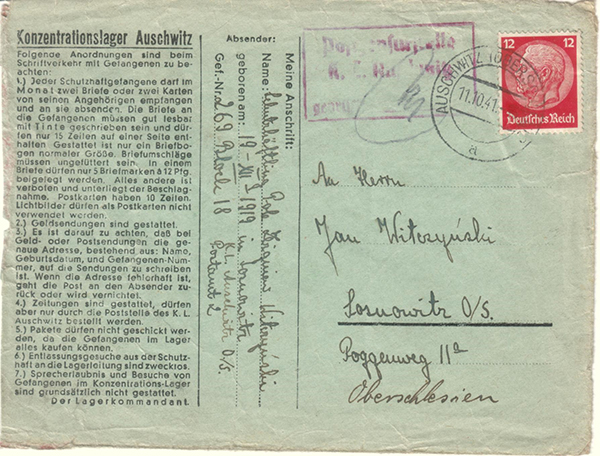 Konzentrationslager Auschwitz
Folgende Anordnungen sind beim
Schriftverkehr mit Gefangenen zu be-
achten:
1.) Jeder Schutzhaftgefangene darf im
Monat zwei Briefe oder zwei Karten
von seinen Angehörigen empfangen
und an sie absenden. Die Briefe an
die Gefangenen müssen gut lesbar
mit Tinte geschrieben sein und dür-
fen nur 15 Zeilen auf einer Seite ent-
halten Gestattet ist nur ein Briefbo-
gen normaler Größe. Briefumschläge
müssen ungefüttert sein. In einem
Briefe dürfen nur 5 Briefmarken à 12 Pfg.
beigelegt werden. Alles andere ist
verboten und unterliegt der Beschlag-
nahme. Postkarten haben 10 Zeilen.
Lichtbilder dürfen als Postkarten nicht
verwendet werden.
2.) Geldsendungen sind gestattet.
3.) Es ist darauf zu achten, daß bei
Geld- oder Postsendungen die ge-
naue Adresse, bestehend aus: Name,
Geburtsdatum, und Gefangenen-Num-
mer, auf die Sendungen zu schreiben
ist. Wenn die Adresse fehlerhaft ist,
geht die Post an den Absender zu-
rück oder wird vernichtet.
4.) Zeitungen sind gestattet, dürfen
aber nur durch die Poststelle des K. L.
Auschwitz bestellt werden.
5.) Pakete dürfen nicht geschickt wer-
den, da die Gefangenen im Lager
alles kaufen können.
6.) Entlassungsgesuche aus der Schutz-
haft an die Lagerleitung sind zwecklos.
7.) Sprecherlaubnis und Besuche von
Gefangenen im Konzentrations-Lager
sind grundsätzlich nicht gestattet.
Der Lagerkommandant.
Absender:
Meine Anschrift:
Name: Schutzhäftling Zbigniew Witoszyński
geboren am: 19-XII 1919 in Sosnowitz
Gef.-Nr. 269 Block 18
K.L. Auschwitz O/S.
Postamt 2
Postzensurstelle
K. L. Auschwitz
geprüft
AUSCHWITZ (OBERSCHLES)
11.10.41
a
12
12
Deutsches Reich
An Herrn
Jan Witoszyński
Sosnowitz O/S.
Poggenweg 11a
Oberschlesien